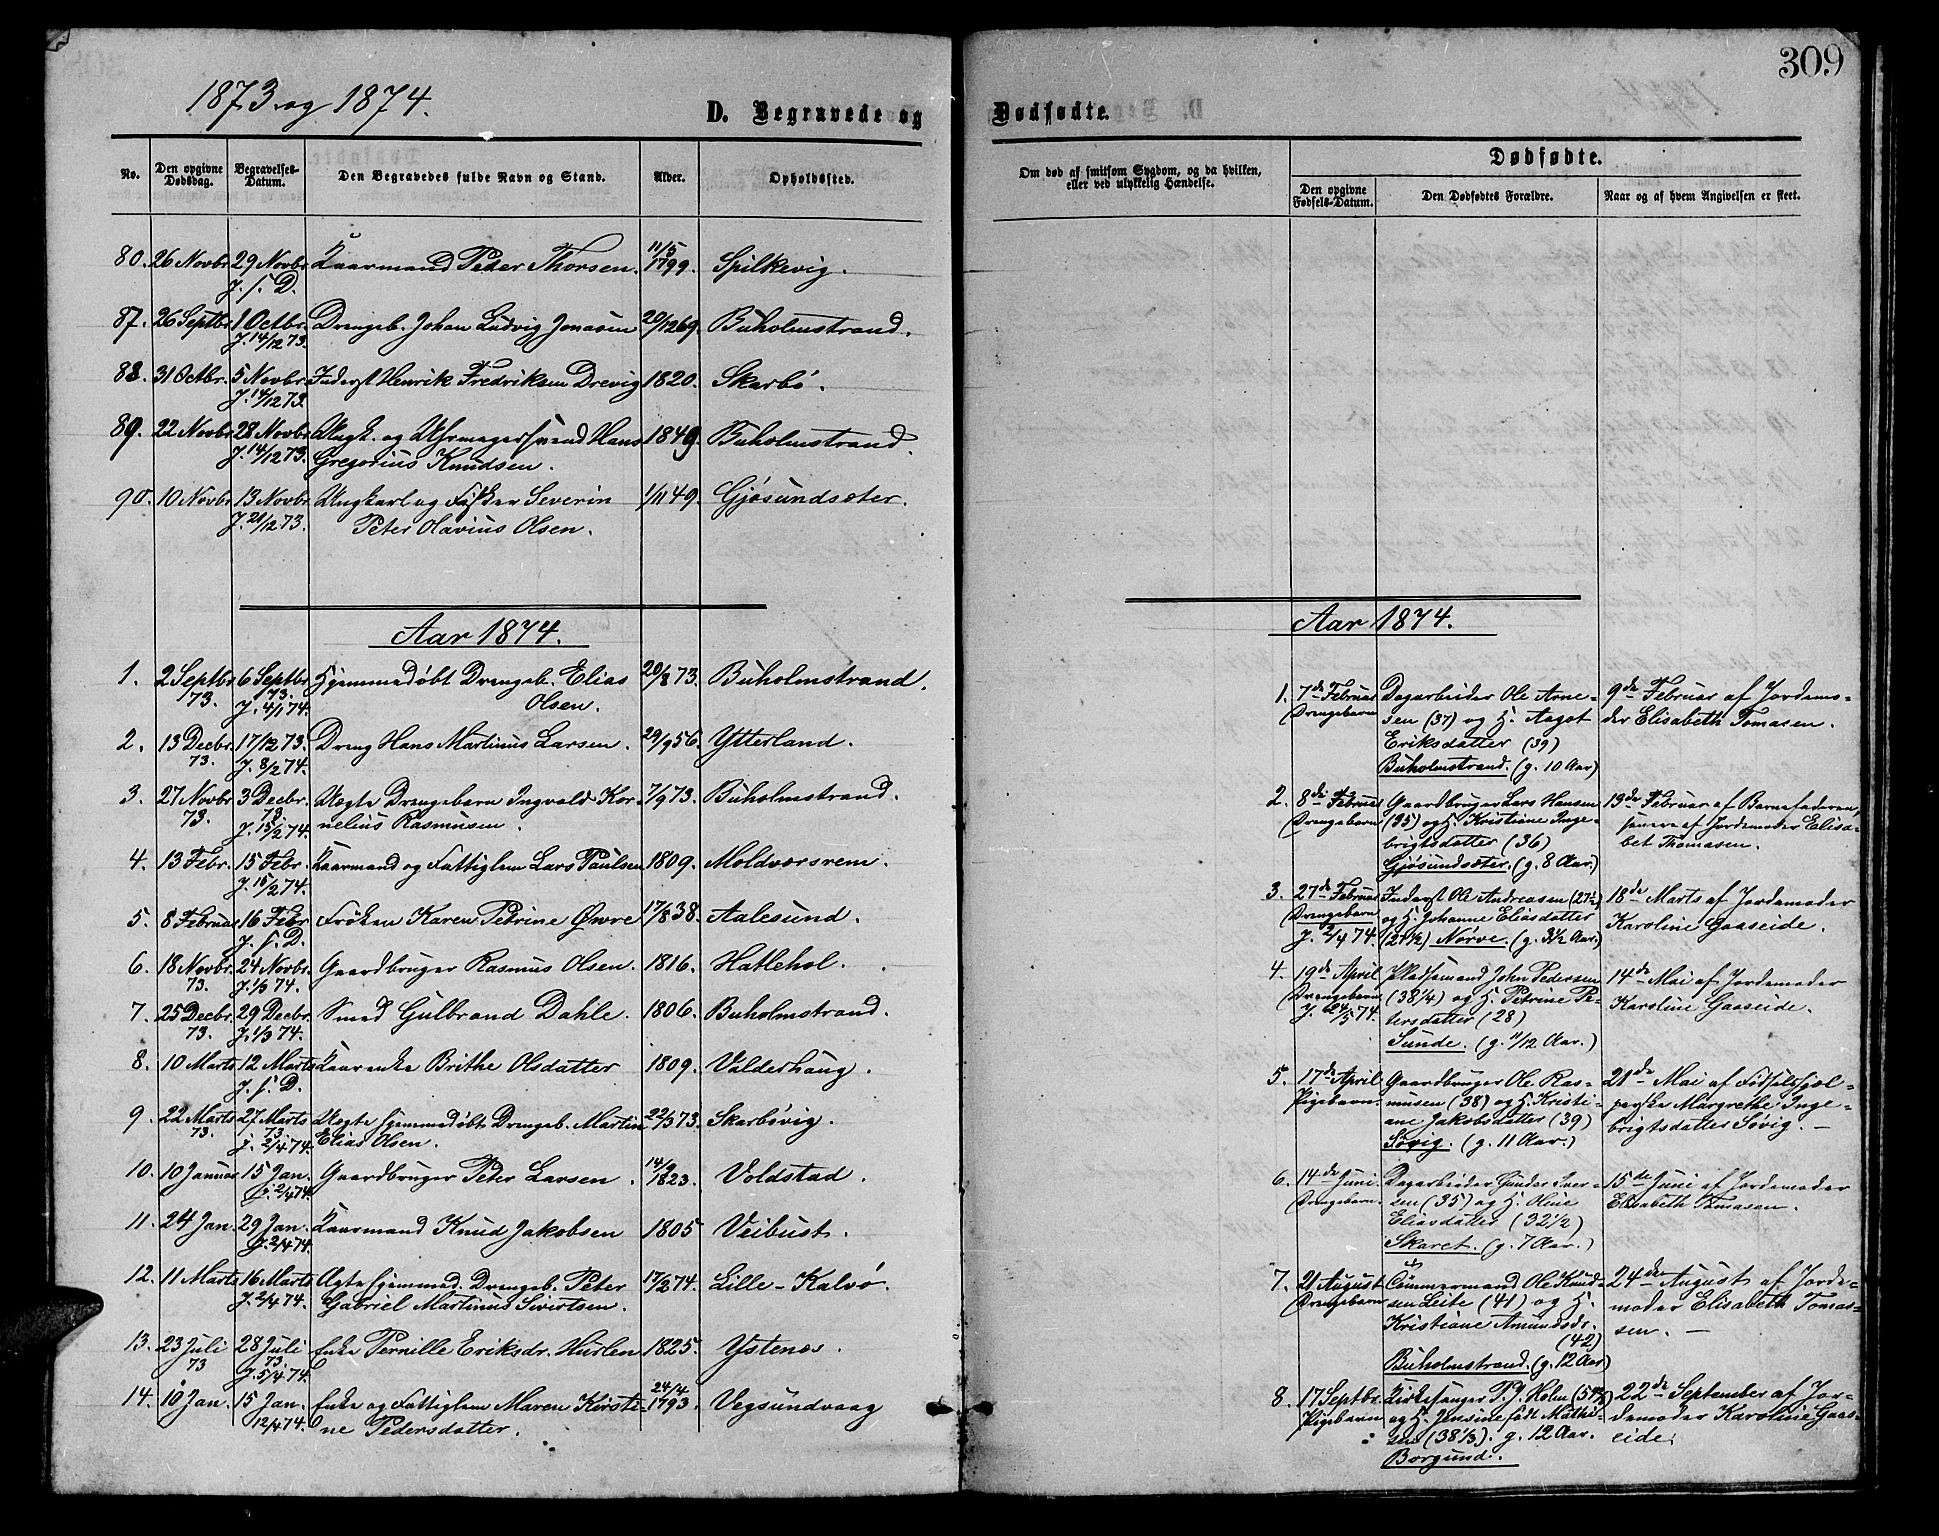 309
1873 og 1874.
D. Begravede og
Dødfødte.
No.
Den opgivne
Dødsdag.
Begravelses-
Datum.
Den Begravedes fulde Navn og Stand.
Alder.
Opholdssted.
Om død af smitsom Sygdom, og da hvilken,
eller ved ulykkelig Hændelse.
Dødfødte.
Den opgivne
Fødsels-Datum.
Den Dødfødtes Forældre.
Naar og af hvem Angivelsen er skeet.
80. 26 Novbr 29 Novbr Kaarmand Peder Thorsen. 11/5 1799. Spilkevig.
J. s. D.
87. 26 Septbr 1 Octbr. Drengeb. Johan Ludvig Jonasen 20/12 69. Buholmstrand.
J. 14/12 73.
88. 31 Octbr. 5 Novbr. Inderst Henrik Fredriksen Drevig 1820. Skarbø.
J. 14/12 73.
89. 22 Novbr 28 Novbr Ungk. og Uhrmagersvend Hans 1849. Buholmstrand.
J. 14/12 73. Gregorius Knudsen.
90. 10 Novbr 13 Novbr Ungkarl og Fisker Severin 1/11 49. Gjøsundsæter.
J. 21/12 73. Peter Olavius Olsen.
Aar 1874.
1. 2 Septbr 6 Septbr Hjemmedøbt Drengeb. Elias 20/8 73. Buholmstrand.
73. 73. Olsen.
J. 4/1 74.
2. 13 Decbr. 17/12 73. Dreng Hans Martinus Larsen. 29/9 56. Ytterland.
73. J. 8/2 74.
3. 27 Novbr 3 Decbr. Uægte Drengebarn Ingvald Kor- 7/9 73. Buholmstrand.
73. 73. nelius Rasmusen.
J. 15/2 74.
4. 13 Febr. 15 Febr. Kaarmand og Fattiglem Lars Paulsen 1809. Moldværsrem.
J. 15/2 74.
5. 8 Februar 16 Febr Frøken Karen Petrine Øwre 17/8 38. Aalesund.
J. s. D.
6. 18 Novbr. 24 Novbr. Gaardbruger Rasmus Olsen. 1816. Hatlehol.
73. J. 1/3 74.
7. 25 Decbr. 29 Decbr. Smed Gulbrand Dahle. 1806. Buholmstrand.
73. J. 1/3 74.
8. 10 Marts 12 Marts Kaarenke Brithe Olsdatter 1809. Valderhaug.
J. s. D.
9. 22 Marts 27 Marts Uægte hjemmedøbt Drengeb. Martin 22/3 73. Skarbøvig.
73. 73. Elias Olsen.
J. 2/4 74.
10. 10 Januar 15 Jan. Gaardbruger Peter Larsen. 14/9 1823. Voldstad.
J. 2/4 74.
11. 24 Jan. 29 Jan. Kaarmand Knud Jakobsen 1805 Veibust.
J. 2/4 74.
12. 11 Marts 16 Marts Ægte hjemmed. Drengeb. Peter 17/2 74. Lille-Kalvø.
J. 2/4 74. Gabriel Martinus Sivertsen.
13. 23 Juli 28 Juli Enke Pernille Eriksdr. Hurlen 1825. Ystenæs.
73 73.
J. 5/4 74.
14. 10 Jan. 15 Jan. Enke og Fattiglem Maren Kirsti- 24/4 1793. Vegsundvaag
12/4 74. ne Pedersdatter.
Aar 1874.
1. 7de Februar Dagarbeider Ole Arne- 9de Februar af Jordemo-
Drengebarn sen (37) og H. Aagot der Elisabeth Tomasen.
Eriksdatter (39)
Buholmstrand. (g. 10 Aar)
2. 8de Februar Gaardbruger Lars Hansen 13de Februar af Barnefaderen,
Drengebarn (35) og H. Kristiane Inge- senere af Jordemoder Elisa-
brigtsdatter (36) bet Thomasen.
Gjøsundsæter. (g. 8 Aar.)
3. 27de Februar Inderst Ole Andreasen (27½) 18de Marts af Jordemoder
Drengebarn og H. Johanne Eliasdatter Karoline Gaaseide.
J. 2/4 74. (27½) Nørve. (g. 3½ Aar.)
4. 19de April Pladsemand John Pedersen 14de Mai af Jordemoder
Drengebarn (38¼) og H. Petrine Pe- Karoline Gaaseide.
J. 24/5 74. tersdatter (28)
Sunde. (g. 1/12 Aar.)
5. 17de April Gaardbruger Ole Ras- 21de Mai af Fødselshjæl-
Pigebarn. musen (38) og H. Kristi- perske Margrethe Inge-
ane Jakobsdatter (39) brigtsdatter Søvig. —
Søvig. (g. 11 Aar.)
6. 14de Juni Dagarbeider Gunder Iver- 15de Juni af Jordemoder
Drengebarn. sen (35) og H. Oline Elisabeth Tomasen.
Eliasdatter (32½)
Skaret. (g. 7 Aar.)
7. 21 August Tømmermand Ole Knud- 24de August af Jorde-
Drengebarn sen Leite (41) og H. moder Elisabeth Tomas-
Kristiane Amundsdr. sen. —
(42)
Buholmstrand. (g. 12 Aar)
8. 17 Septbr. Kirkesanger P. J. Holm (54½) 22de September af Jor-
Pigebarn og H. Jensine født Mathi- demoder Karoline Gaas-
sen (38⅓). g. 12 Aar. eide.
Borgund.